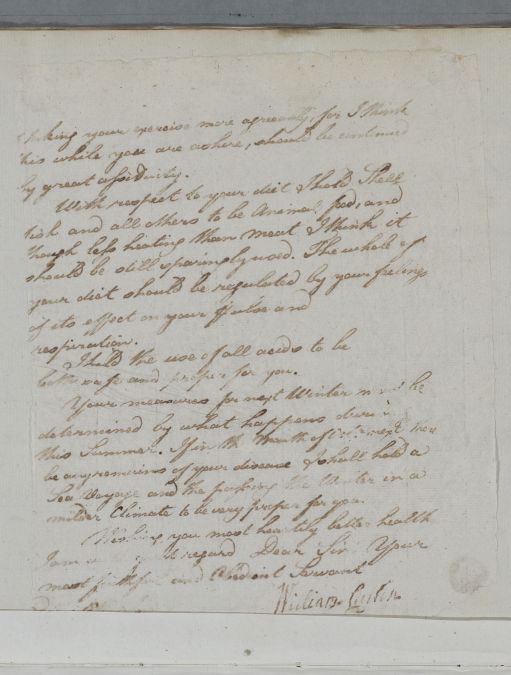 taking your exercise more agreeably, for I think
this while you are ashore, should be continued
by great assiduity.
With respect to your diet I hold Shell
fish and all others to be Animal food, and
though less heating than meat I think it
should be still sparingly used. The whole of
your diet should be regulated by your feelings
of its effect on your pulse and
respiration.
I hold the use of all acids to be
both safe and proper for you.
Your measures for next Winter must be
determined by what happens during
this Summer. If in the Month of next there
be any remains of your disease I shall hold a
Sea Voyage and the passing the Winter in a
milder Climate to be very proper for you.
Wishing you most heartily better health
I am regard Dear Sir Your
most faithful and Obedient Servant
William Cullen